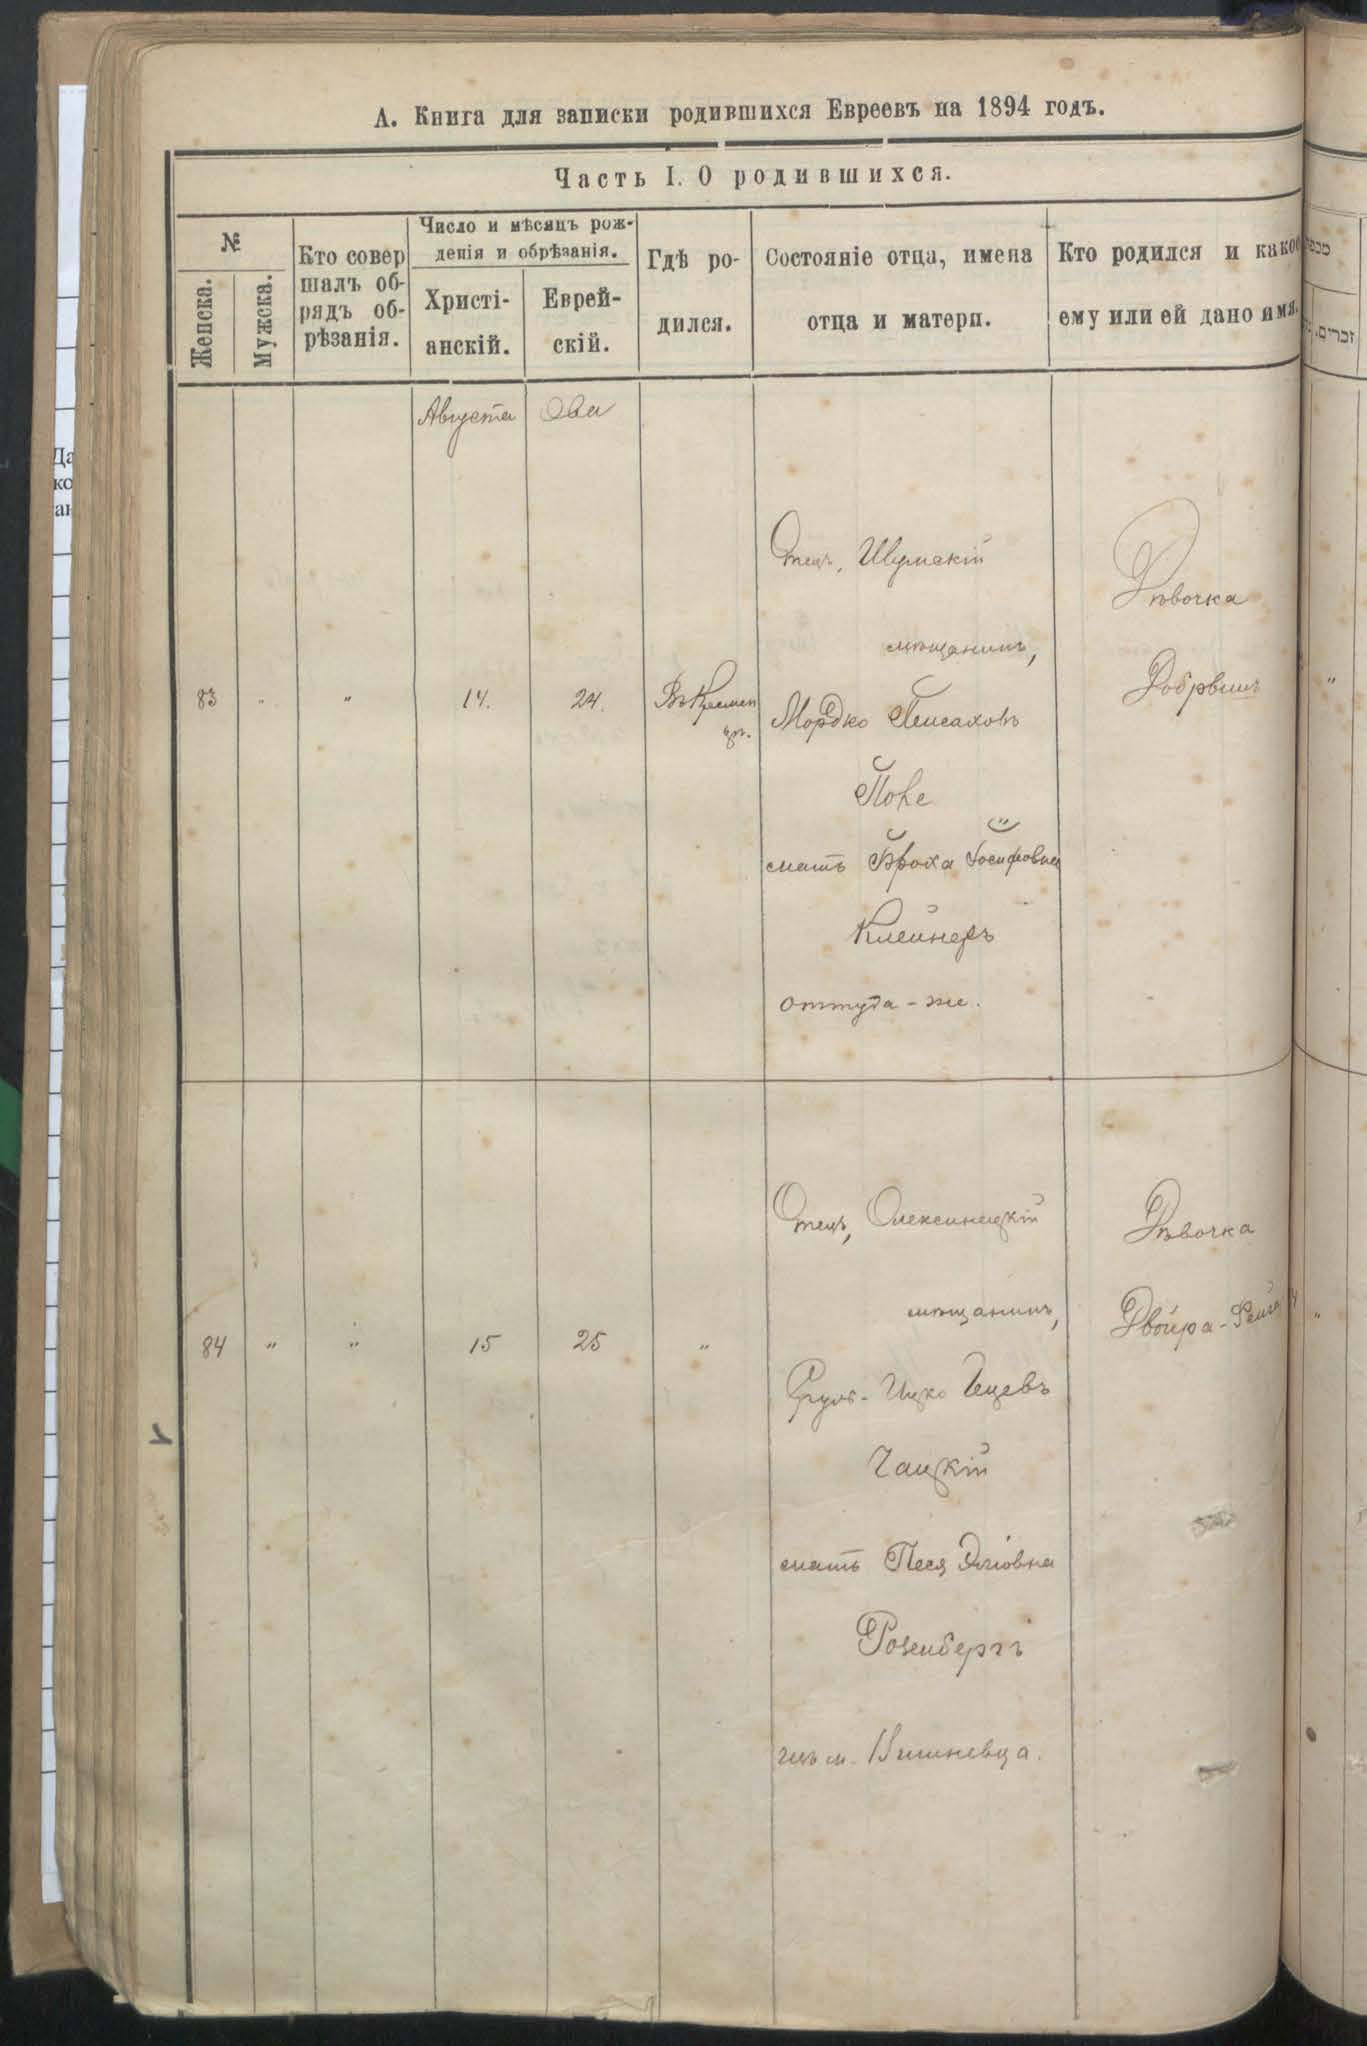 А. Книга для записки родившихся Евреевъ на 1894 годъ.
Часть I. О родившихся.
№
Женска.
Мужска.
Кто совер
шалъ об-
рядъ об-
рѣзанія.
Число и мѣсяцъ рож-
денія и обрѣзанія.
Христі-
анскій.
Еврей-
скій.
Гдѣ ро-
дился.
Состояніе отца, имена
отца и матери.
Кто родился и какое
ему или ей дано имя.
Августа
Ова
83
"
"
14.
24.
Въ Кремен
цѣ.
Отецъ, Шумскій
мѣщанинъ,
Мордко Пейсаховъ
мать Броха Іосифовна
Клейнеръ
оттуда-же.
Дѣвочка
"
84
"
"
15
25
"
Отецъ, Олексинецкій
мѣщанинъ,
Сруль-Ицко
Чацкій
мать Песя
Розенбергъ
изъ м. Вишневца.
Дѣвочка
Двойра-Фейга
"
זכרים.
Да
ко
ан